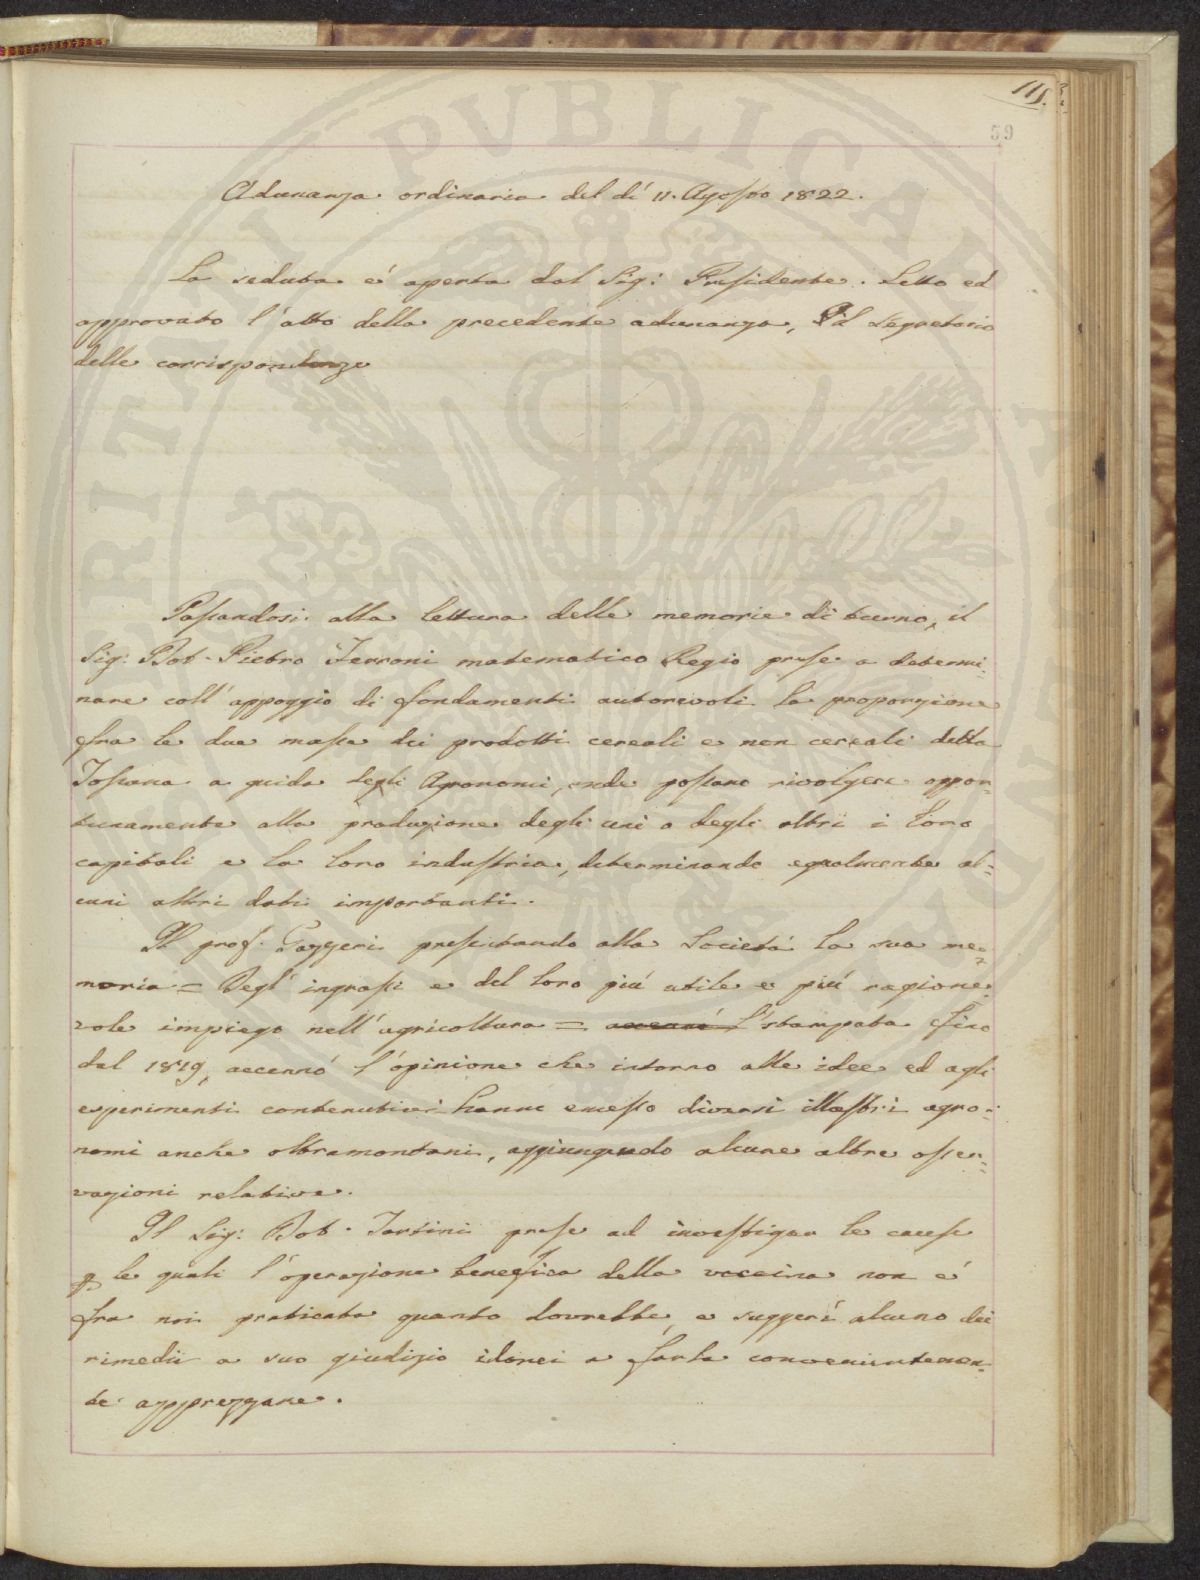 111.
59
Adunanza ordinaria del dì 11. Agosto 1822.
La seduta é aperta dal Sig: Presidente. Letto ed
approvato l'atto della precedente adunanza, Il Segretario
delle corrispondenze
Passandosi alla lettura delle memorie di turno, il
Sig: Dot. Pietro Ferroni matematico Regio prese a determi=
nare coll'appoggio di fondamenti autorevoli la proporzione
fra le due masse dei prodotti cereali e non cereali della
Toscana a guida degli Agronomi, onde possano rivolgere oppor=
tunamente alla produzione degli uni o degli altri i loro
capitali e la loro industria, determinando egualmente al=
cuni altri dati importanti.
Il prof. Gazzeri presentando alla Società la sua me=
moria = Degl'ingrassi e del loro piú utile e piú ragione=
vole impiego nell'agricoltura = accennó l'stampata fino
dal 1819, accennó l'opinione che intorno alle idee ed agli
esperimenti contenutivi hanno emesso diversi illustri agro=
nomi anche oltramontani, aggiungendo alcune altre osser=
vazioni relative.
Il Sig: Dot. Tartini prese ad investigar le cause
p le quali l'operazione benefica della vaccina non é
fra noi praticata quanto dovrebbe, e suggerí alcuno dei
rimedii a suo giudizio idonei a farla convenientemen=
te apprezzare.
PVBLICAE
PROSPERITATI
AVGENDAE